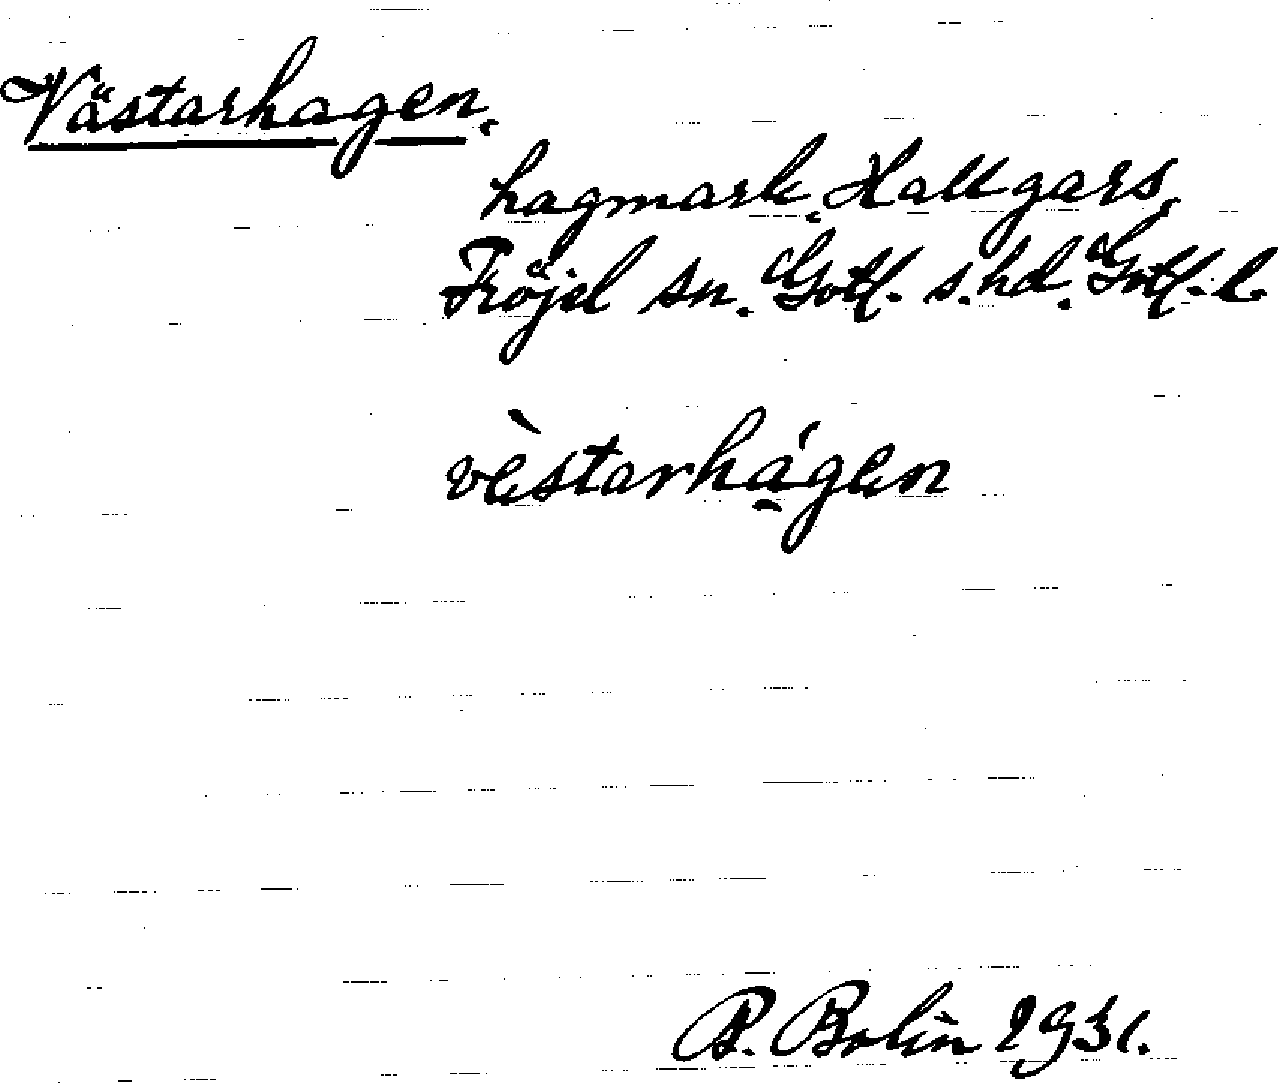 Västarhagen.
hagmark, Hallgars,
Fröjel sn. Gotl. s. hd. Gotl. l.
vèstarhá̱gen
B. Bolin 1931.